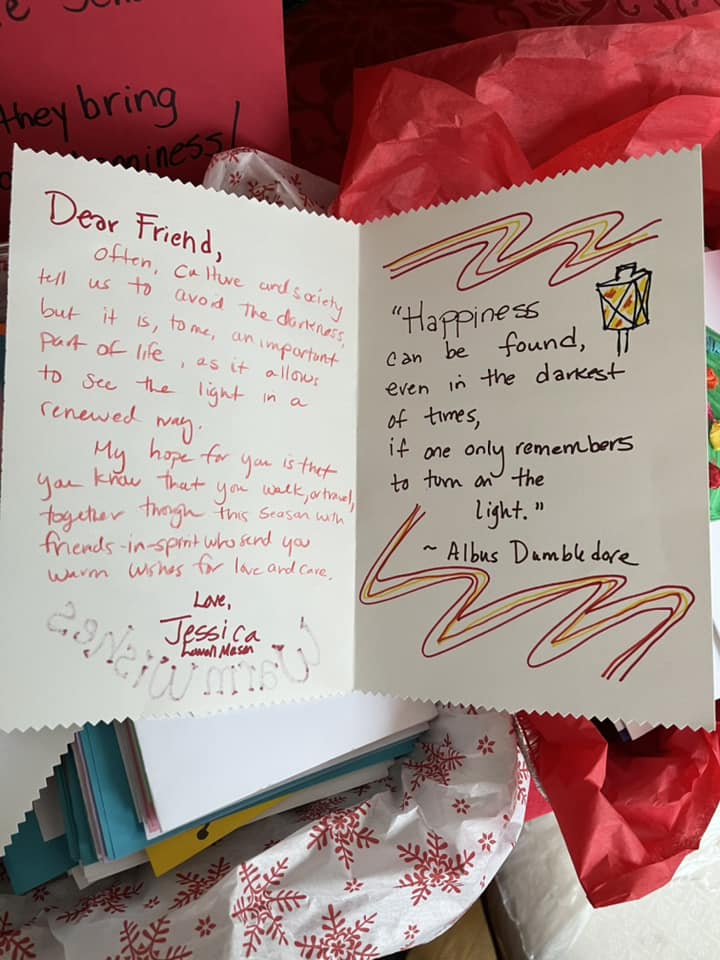 they bring
happiness!
Dear Friend,
Often, culture and society
tell us to avoid the darkness,
but it is, to me, an important
part of life, as it allows
to see the light in a
renewed way.
My hope for you is that
you know that you walk, or travel,
together through this season with
friends-in-spirit who send you
warm wishes for love and care.
Love,
Jessica
Lowell Mason
Warm Wishes
"Happiness
can be found,
even in the darkest
of times,
if one only remembers
to turn on the
light."
~ Albus Dumbledore